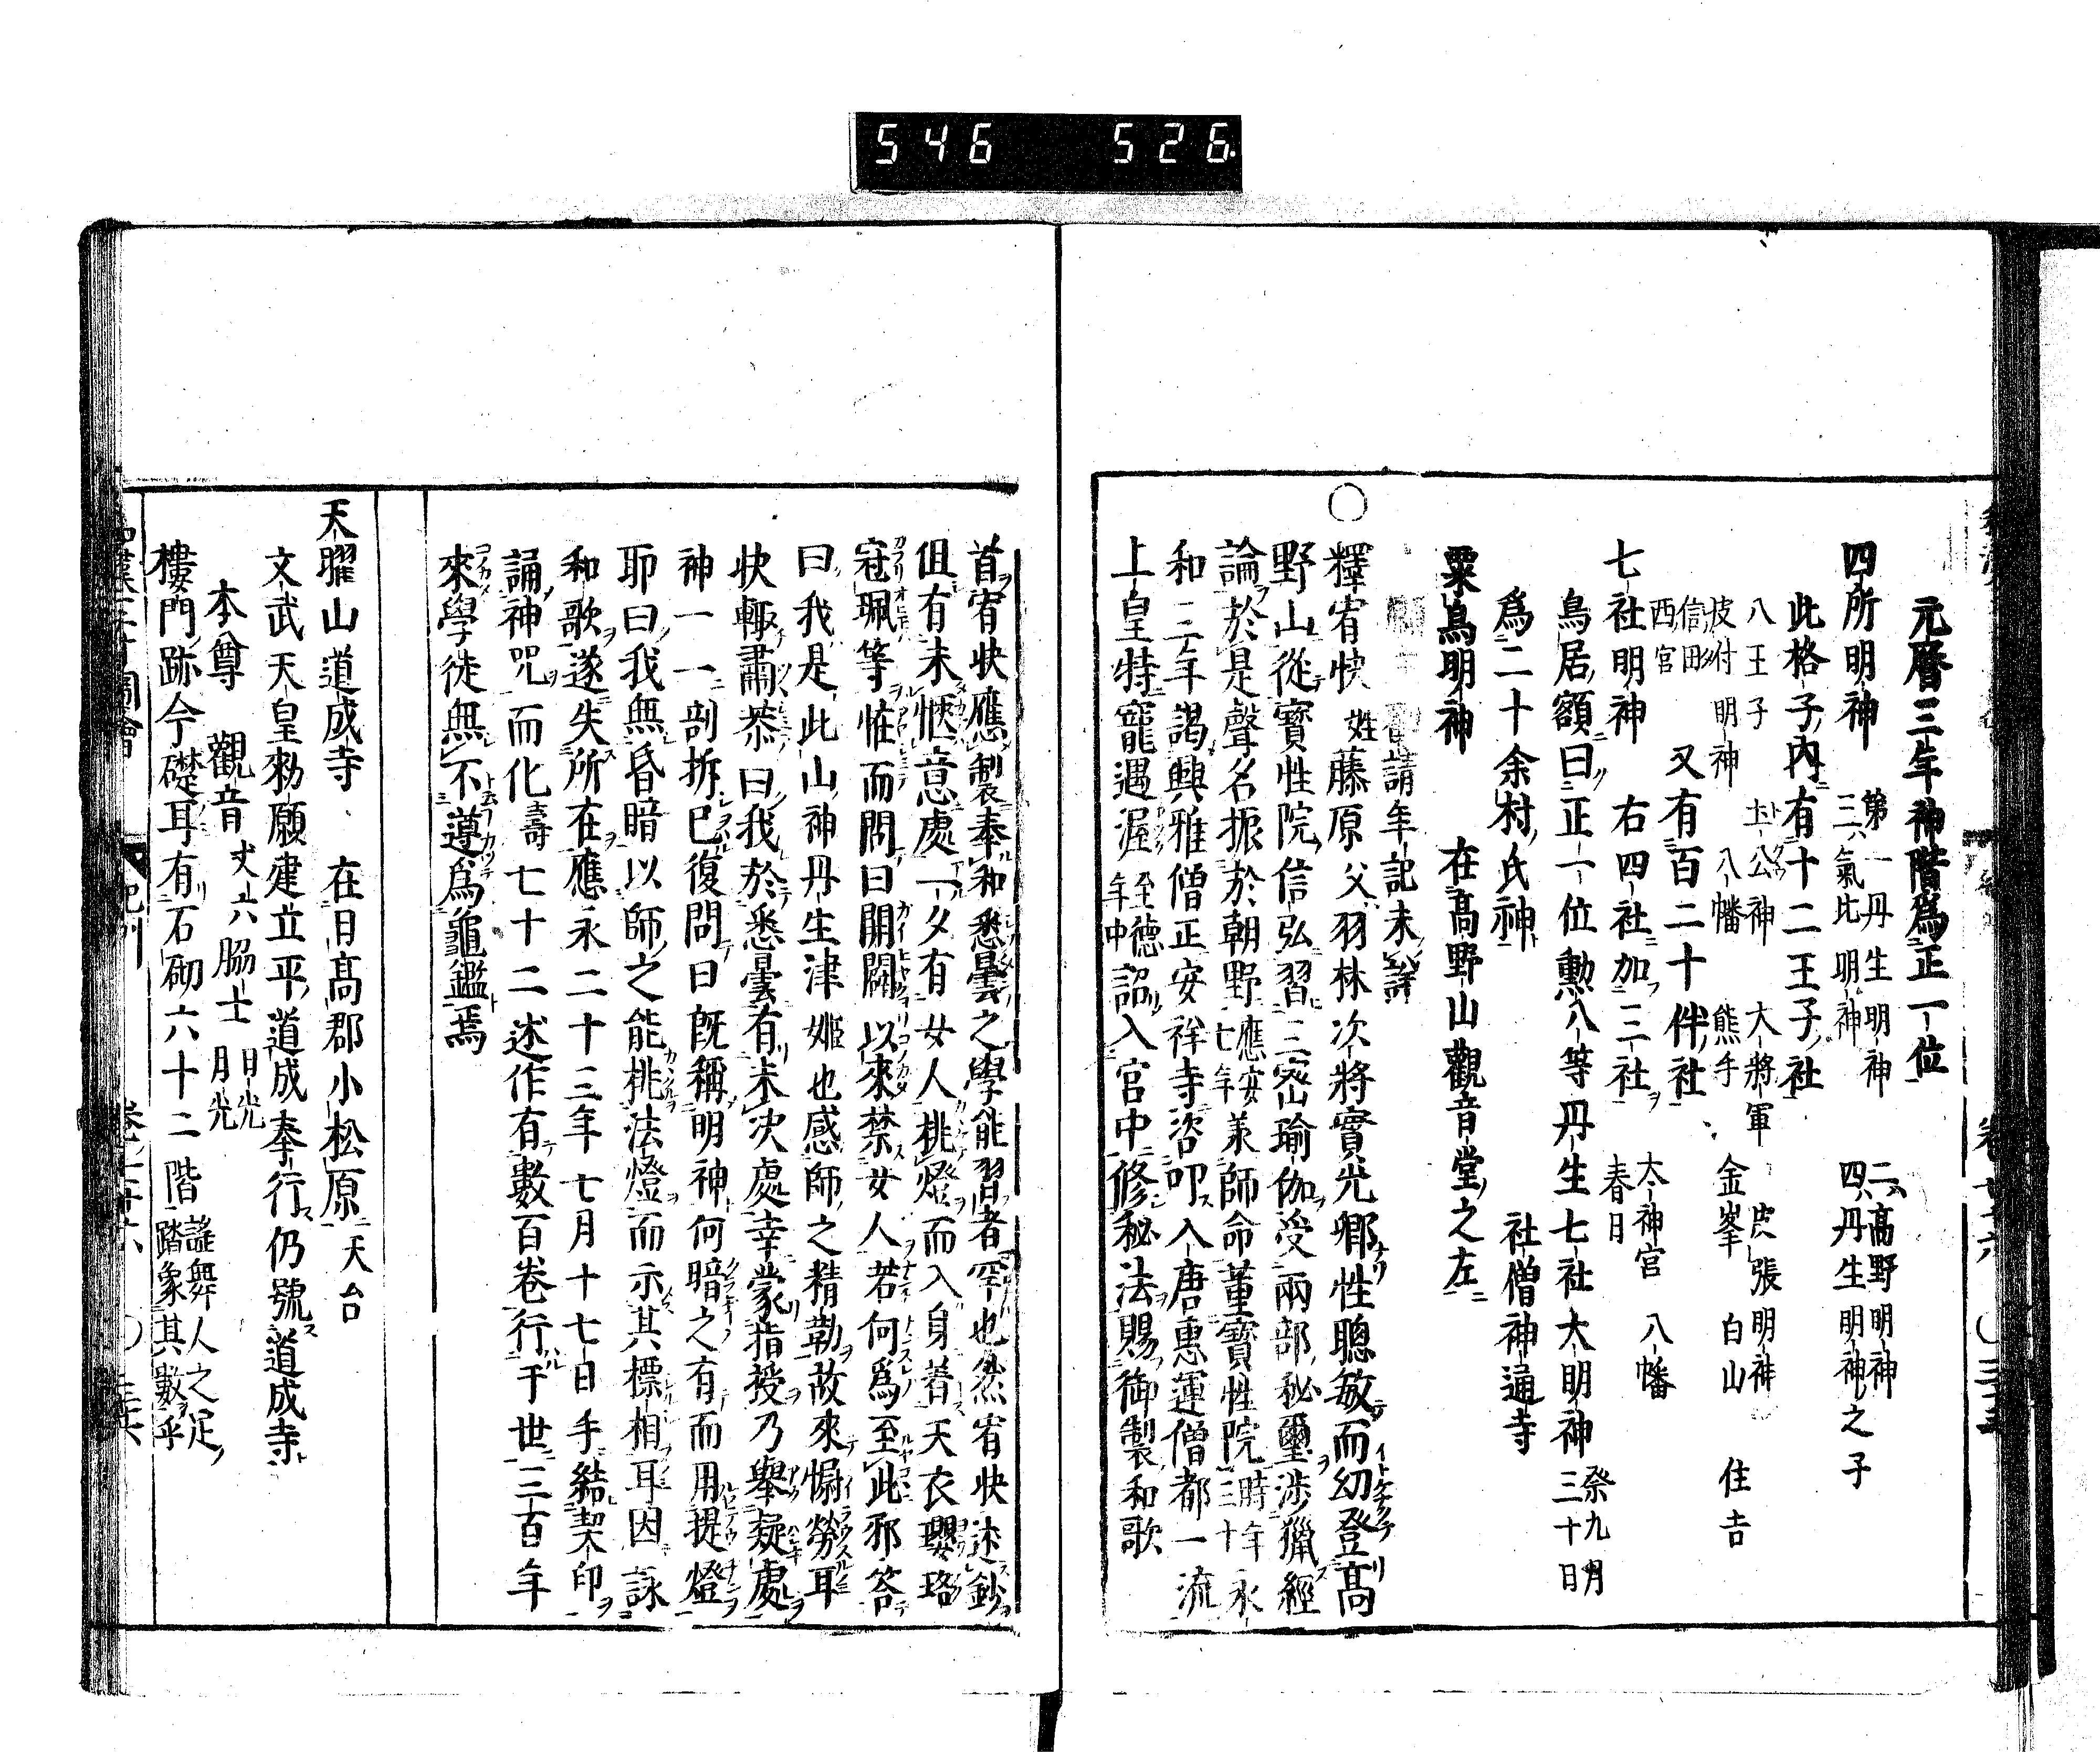 546 526
元曆三年神階爲正一位
四所明神 第一丹生明神 二高野明神
三氣比明神 四丹生明神之子
此格子內有十二王子社
八王子 土公神 大將軍 皮張明神
皮付明神 八幡 熊手 金峯 白山 住吉
信田 西宮 又有百二十伴社 太神宮 八幡
春日
七社明神 右四社加三社
鳥居額曰正一位勲八等丹生七社大明神 祭九月
三十日
爲二十余村氏神 社僧神通寺
粟嶋明神 在高野山觀音堂之左
請年記未詳
○釋宥快 姓藤原父羽林次將實光卿性聰敏而幼登高
野山從寶性院信弘習三密瑜伽受兩部秘璽涉獵經
論於是聲名振於朝野 應安七年 兼師命董寶性院 時年三十 永
和二年謁興雅僧正安祥寺咨叩入唐惠運僧都一流
上皇特寵遇渥 至德年中 詔入宮中修秘法賜御製和歌
首宥快應制奉和悉曇之學能習者罕也然宥快述鈔
伹有未愜意處一夕有女人挑燈而入身着天衣瓔珞
冠珮等恠而問曰開闢以來禁女人若何爲至此邪答
曰我是此山神丹生津姬也感師之精勤故來惱勞耳
快輙肅恭曰我於悉曇有未决處幸蒙指授乃擧疑處
神一一剖拆已復問曰旣稱明神何暗之有而用提燈
耶曰我無昏暗以師之能挑法燈而示其標相耳因詠
和歌遂失所在應永二十三年七月十七日手結契印
誦神咒而化 壽七十二 述作有數百卷行于世三百年
來學徒無不遵爲龜鑑焉
天曜山道成寺 在日高郡小松原 天台
文武天皇勑願建立平道成奉行仍號道成寺
本尊 觀音 丈六 脇士 日光 月光
樓門跡今礎耳有石砌六十二階 謡舞人之足
踏象其數乎